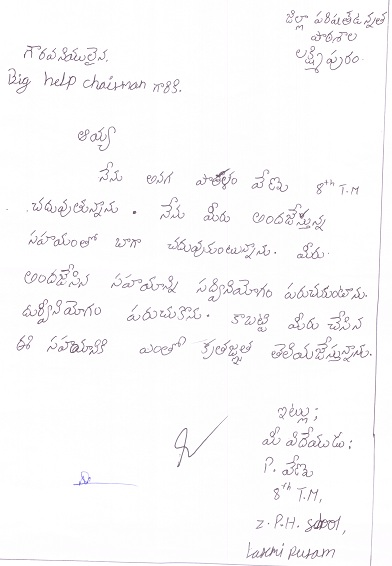 జిల్లా పరిషత్ ఉన్నత
పాఠశాల
లక్ష్మీపురం.
గౌరవనీయులైన,
Big help chairman గారికి.
అయ్యా
నేను అనగా వేణు 8th T.M
చదువుతున్నాను. నేను మీరు అందజేస్తున్న
సహాయంతో బాగా చదువుకుంటున్నాను. మీరు
అందజేసిన సహాయాన్ని సద్వినియోగం పరుచుకుంటాను.
దుర్వినియోగం పరుచుకోను. కాబట్టి మీరు చేసిన
ఈ సహాయానికి ఎంతో కృతజ్ఞత తెలియజేస్తున్నాను.
ఇట్లు;
మీ విదేయుడు;
P. వేణు
8th T.M,
Z.P.H. school,
Laxmi puram